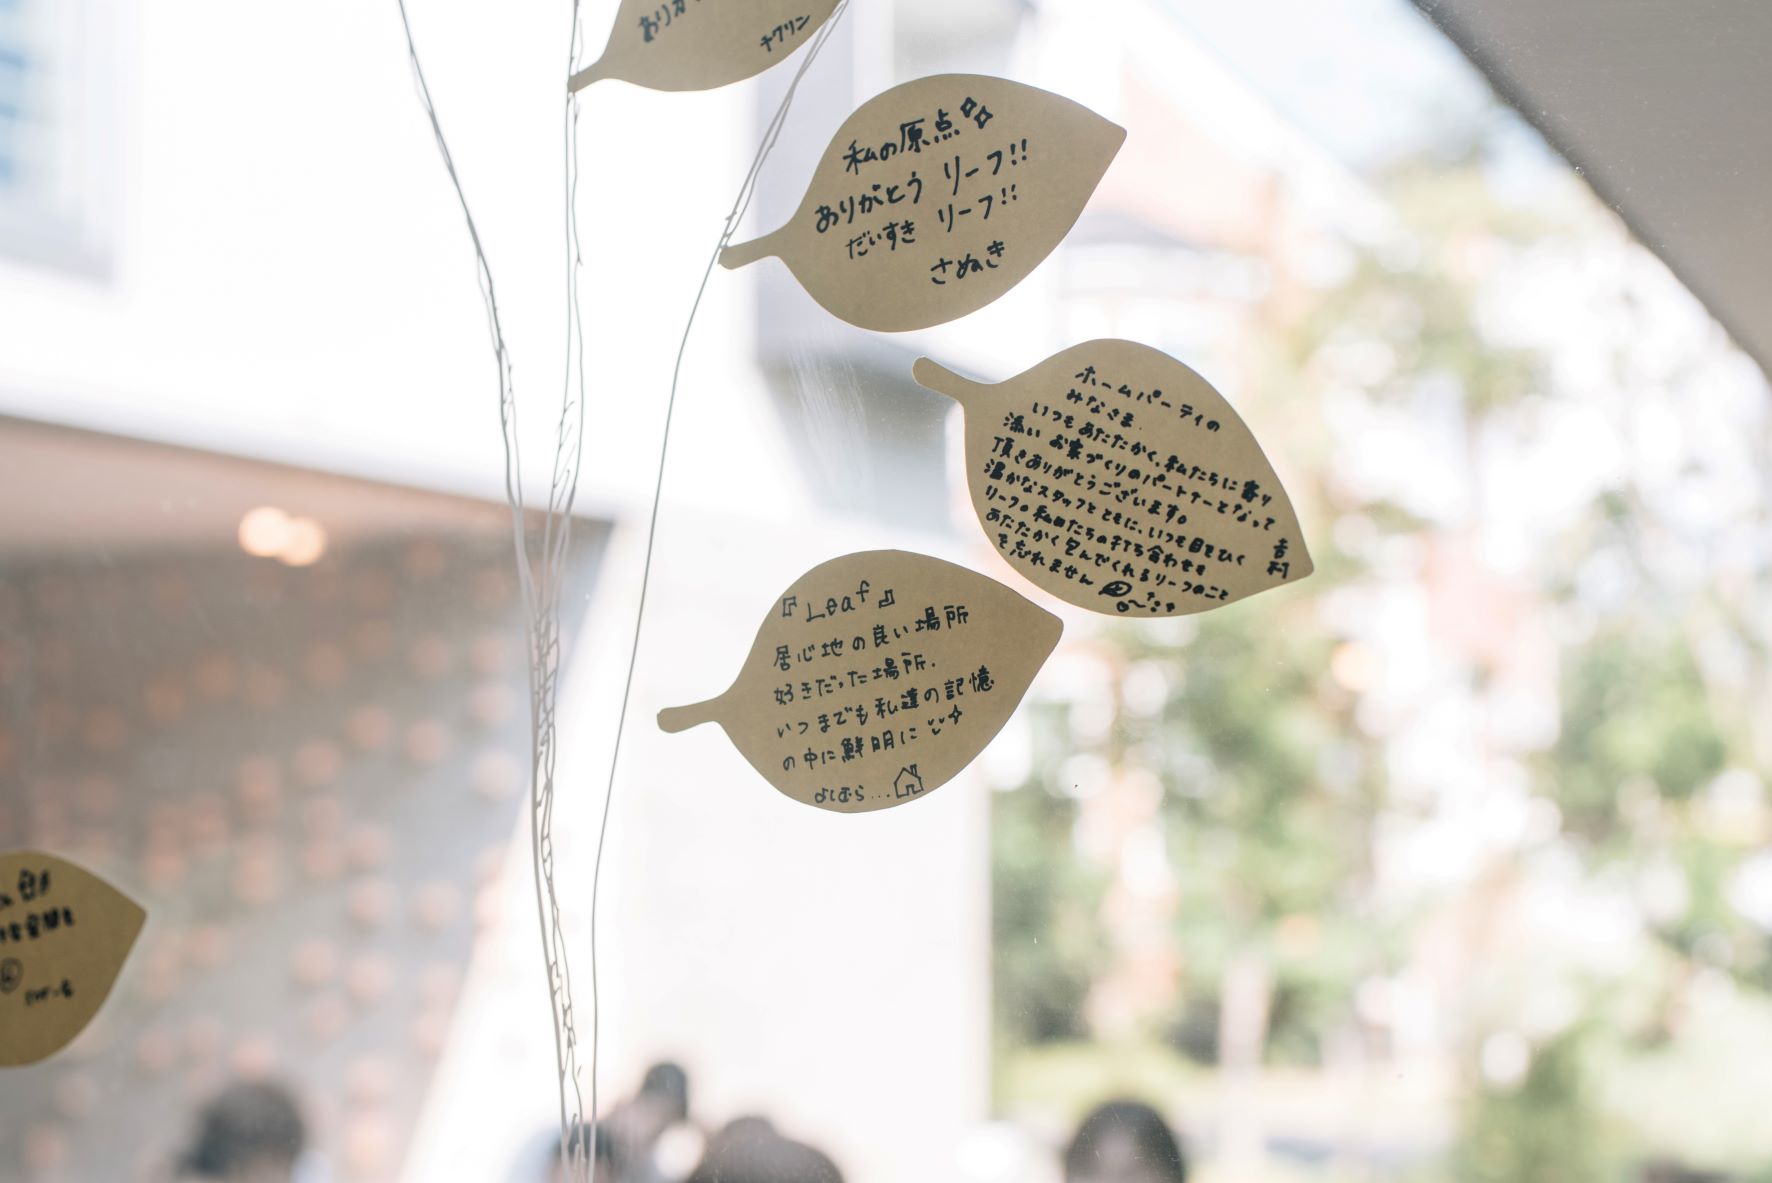 ありが
チワリン
私の原点
ありがとう リーフ!!
だいすき リーフ!!
さぬき
ホームパーティの
みなさま.
いつもあたたかく、私たちに寄り
添い お家づくりのパートナーとなって
頂きありがとうございます。
温かなスタッフとともに、いつも目をひく
リーフ。私たちの打ち合わせを
あたたかく包んでくれるリーフのこと
を忘れません
吉村
『Leaf』
居心地の良い場所
好きだった場所.
いつまでも私達の記憶
の中に鮮明に
よしむら...